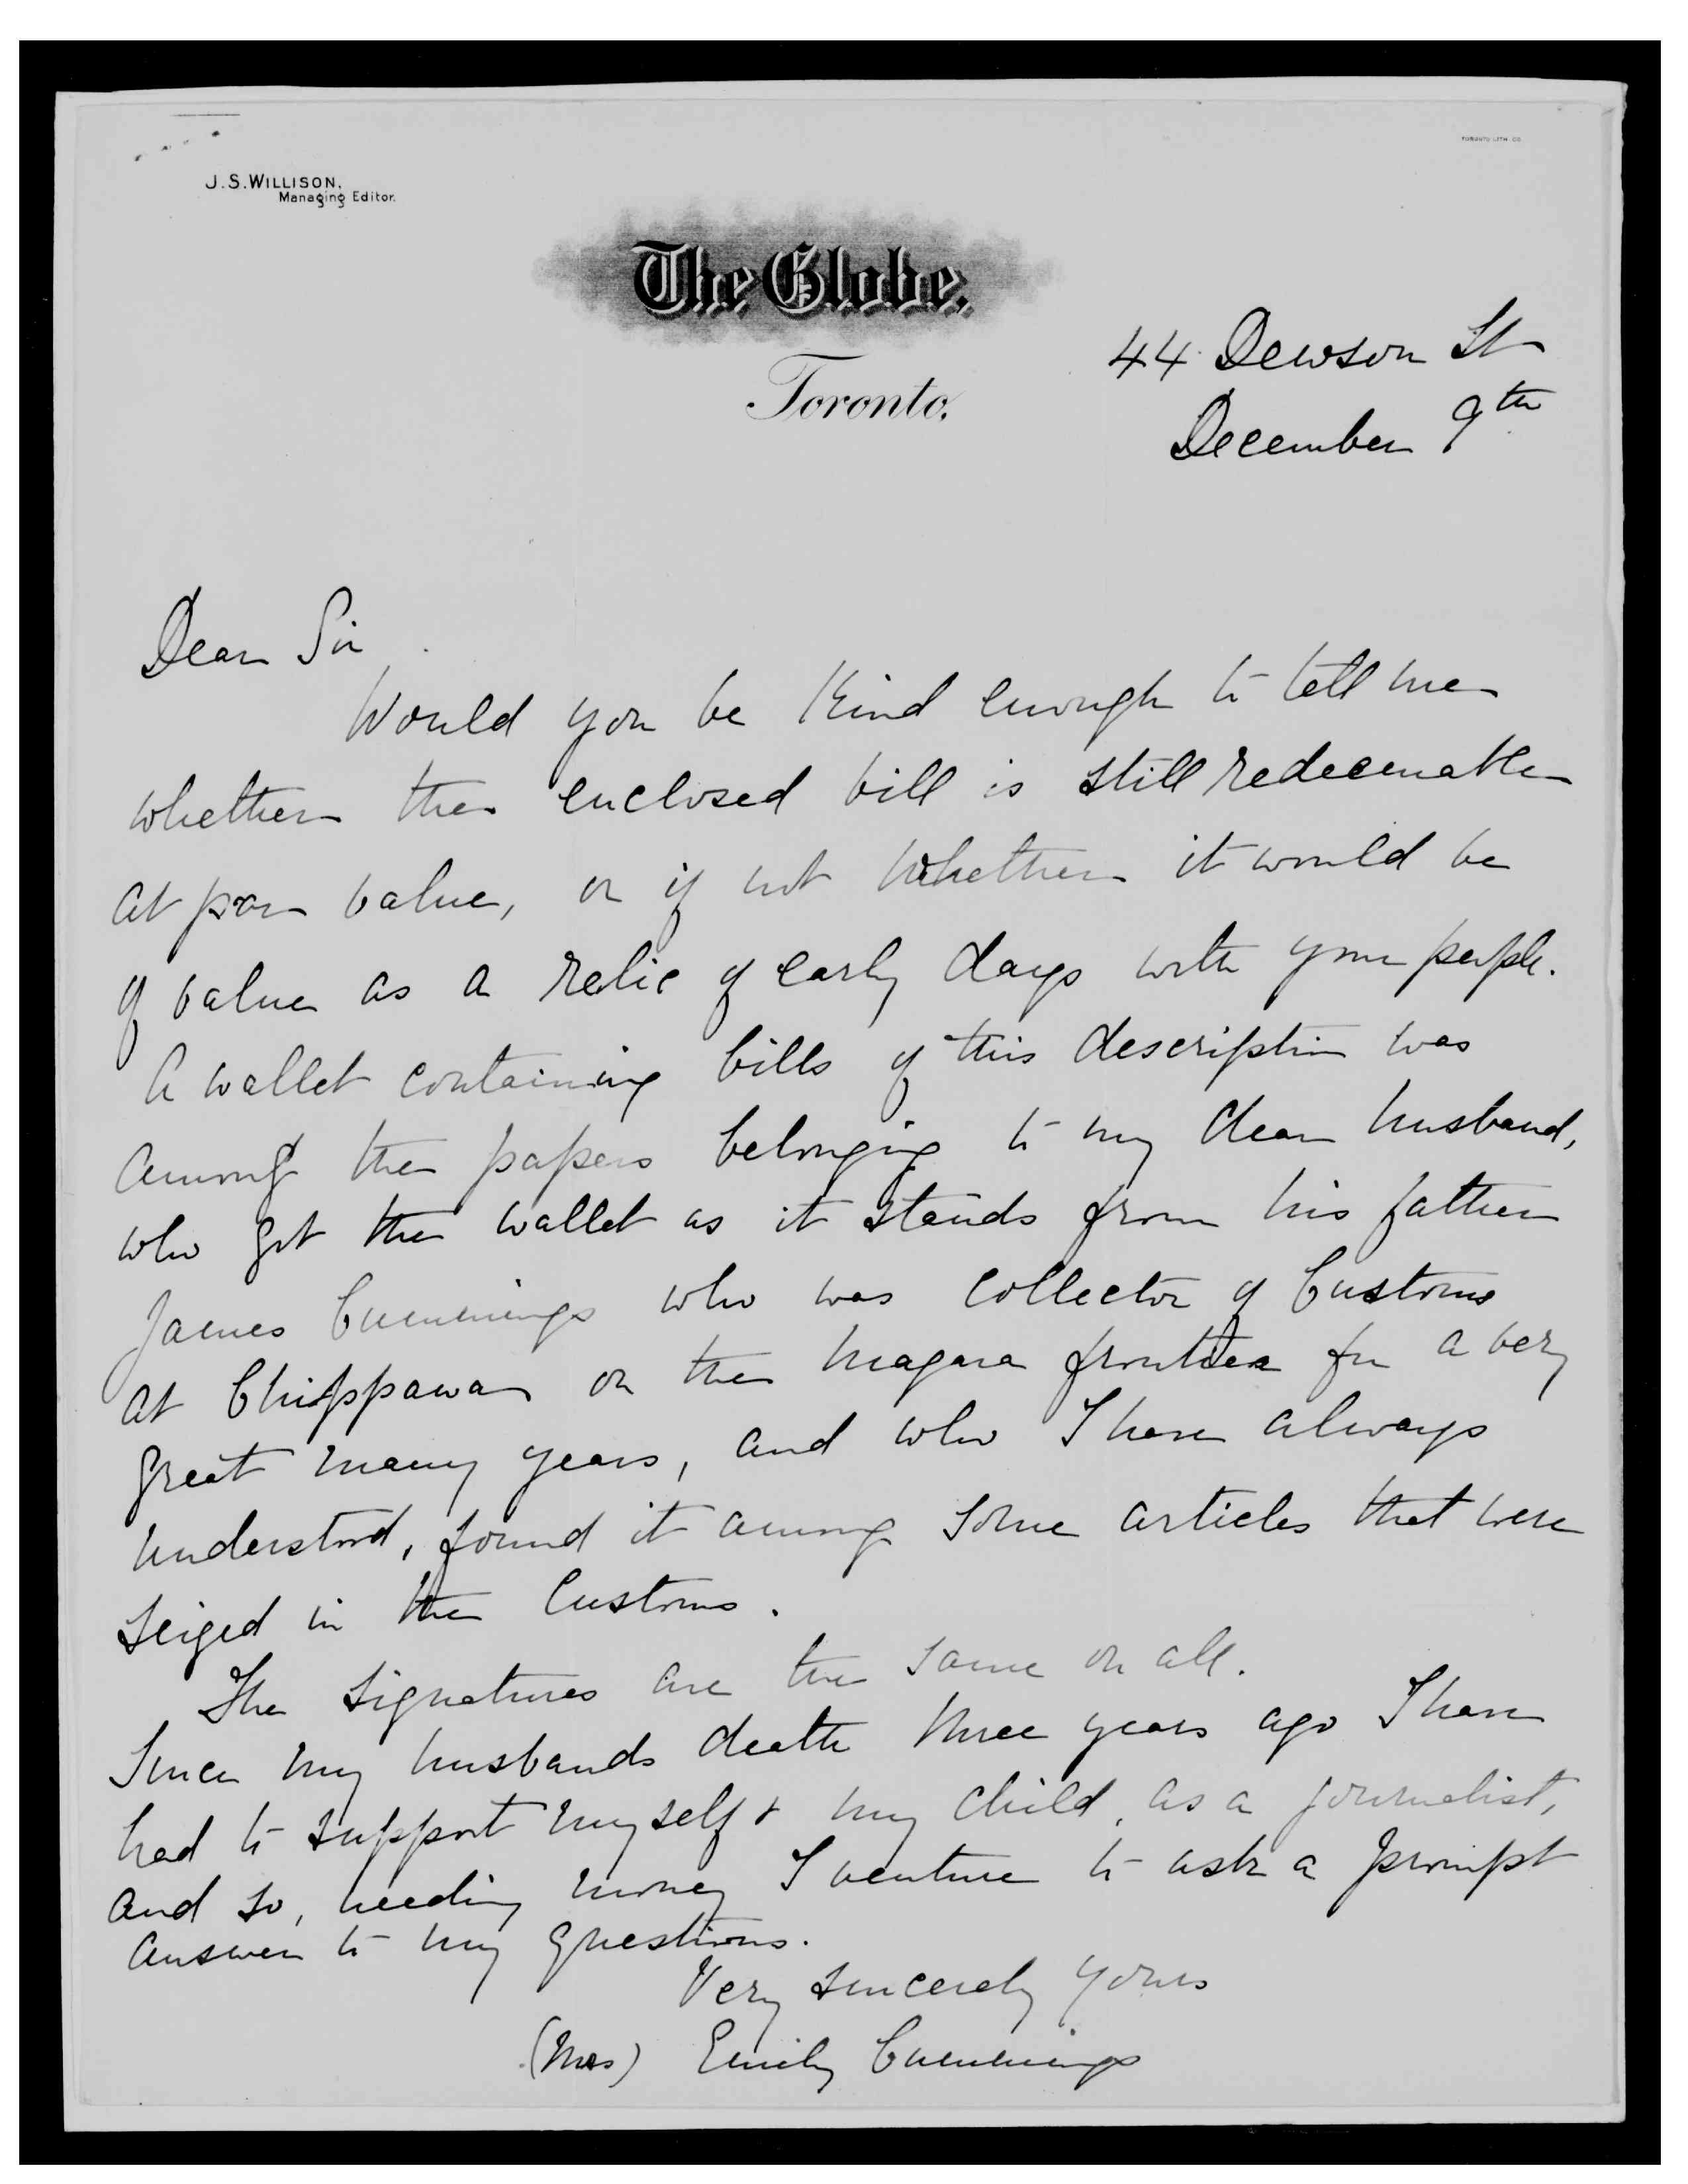 J.S. WILLISON,
Managing Editor.
TORONTO LITH. CO.
The Globe,
Toronto.
44 Dewson St
December 9th
Dear Sir
Would you be kind enough to tell me
whether the enclosed bill is still redeemable
at par value, or if not whether it would be
of value as a relic of early days with your people.
A wallet containing bills of this description was
among the papers belonging to my dear husband,
who got the wallet as it stands from his father
James Cummings who was Collector of Customs
at Chippawa on the Niagara frontier for a very
great many years, and who I have always
understood, found it among some articles that were
seized in the Customs.
The signatures are the same on all.
Since my husbands death three years ago I have
had to support myself & my child, as a journalist,
and so, needing money I venture to ask a prompt
answer to my questions.
Very sincerely yours
(Mrs) Emily Cummings